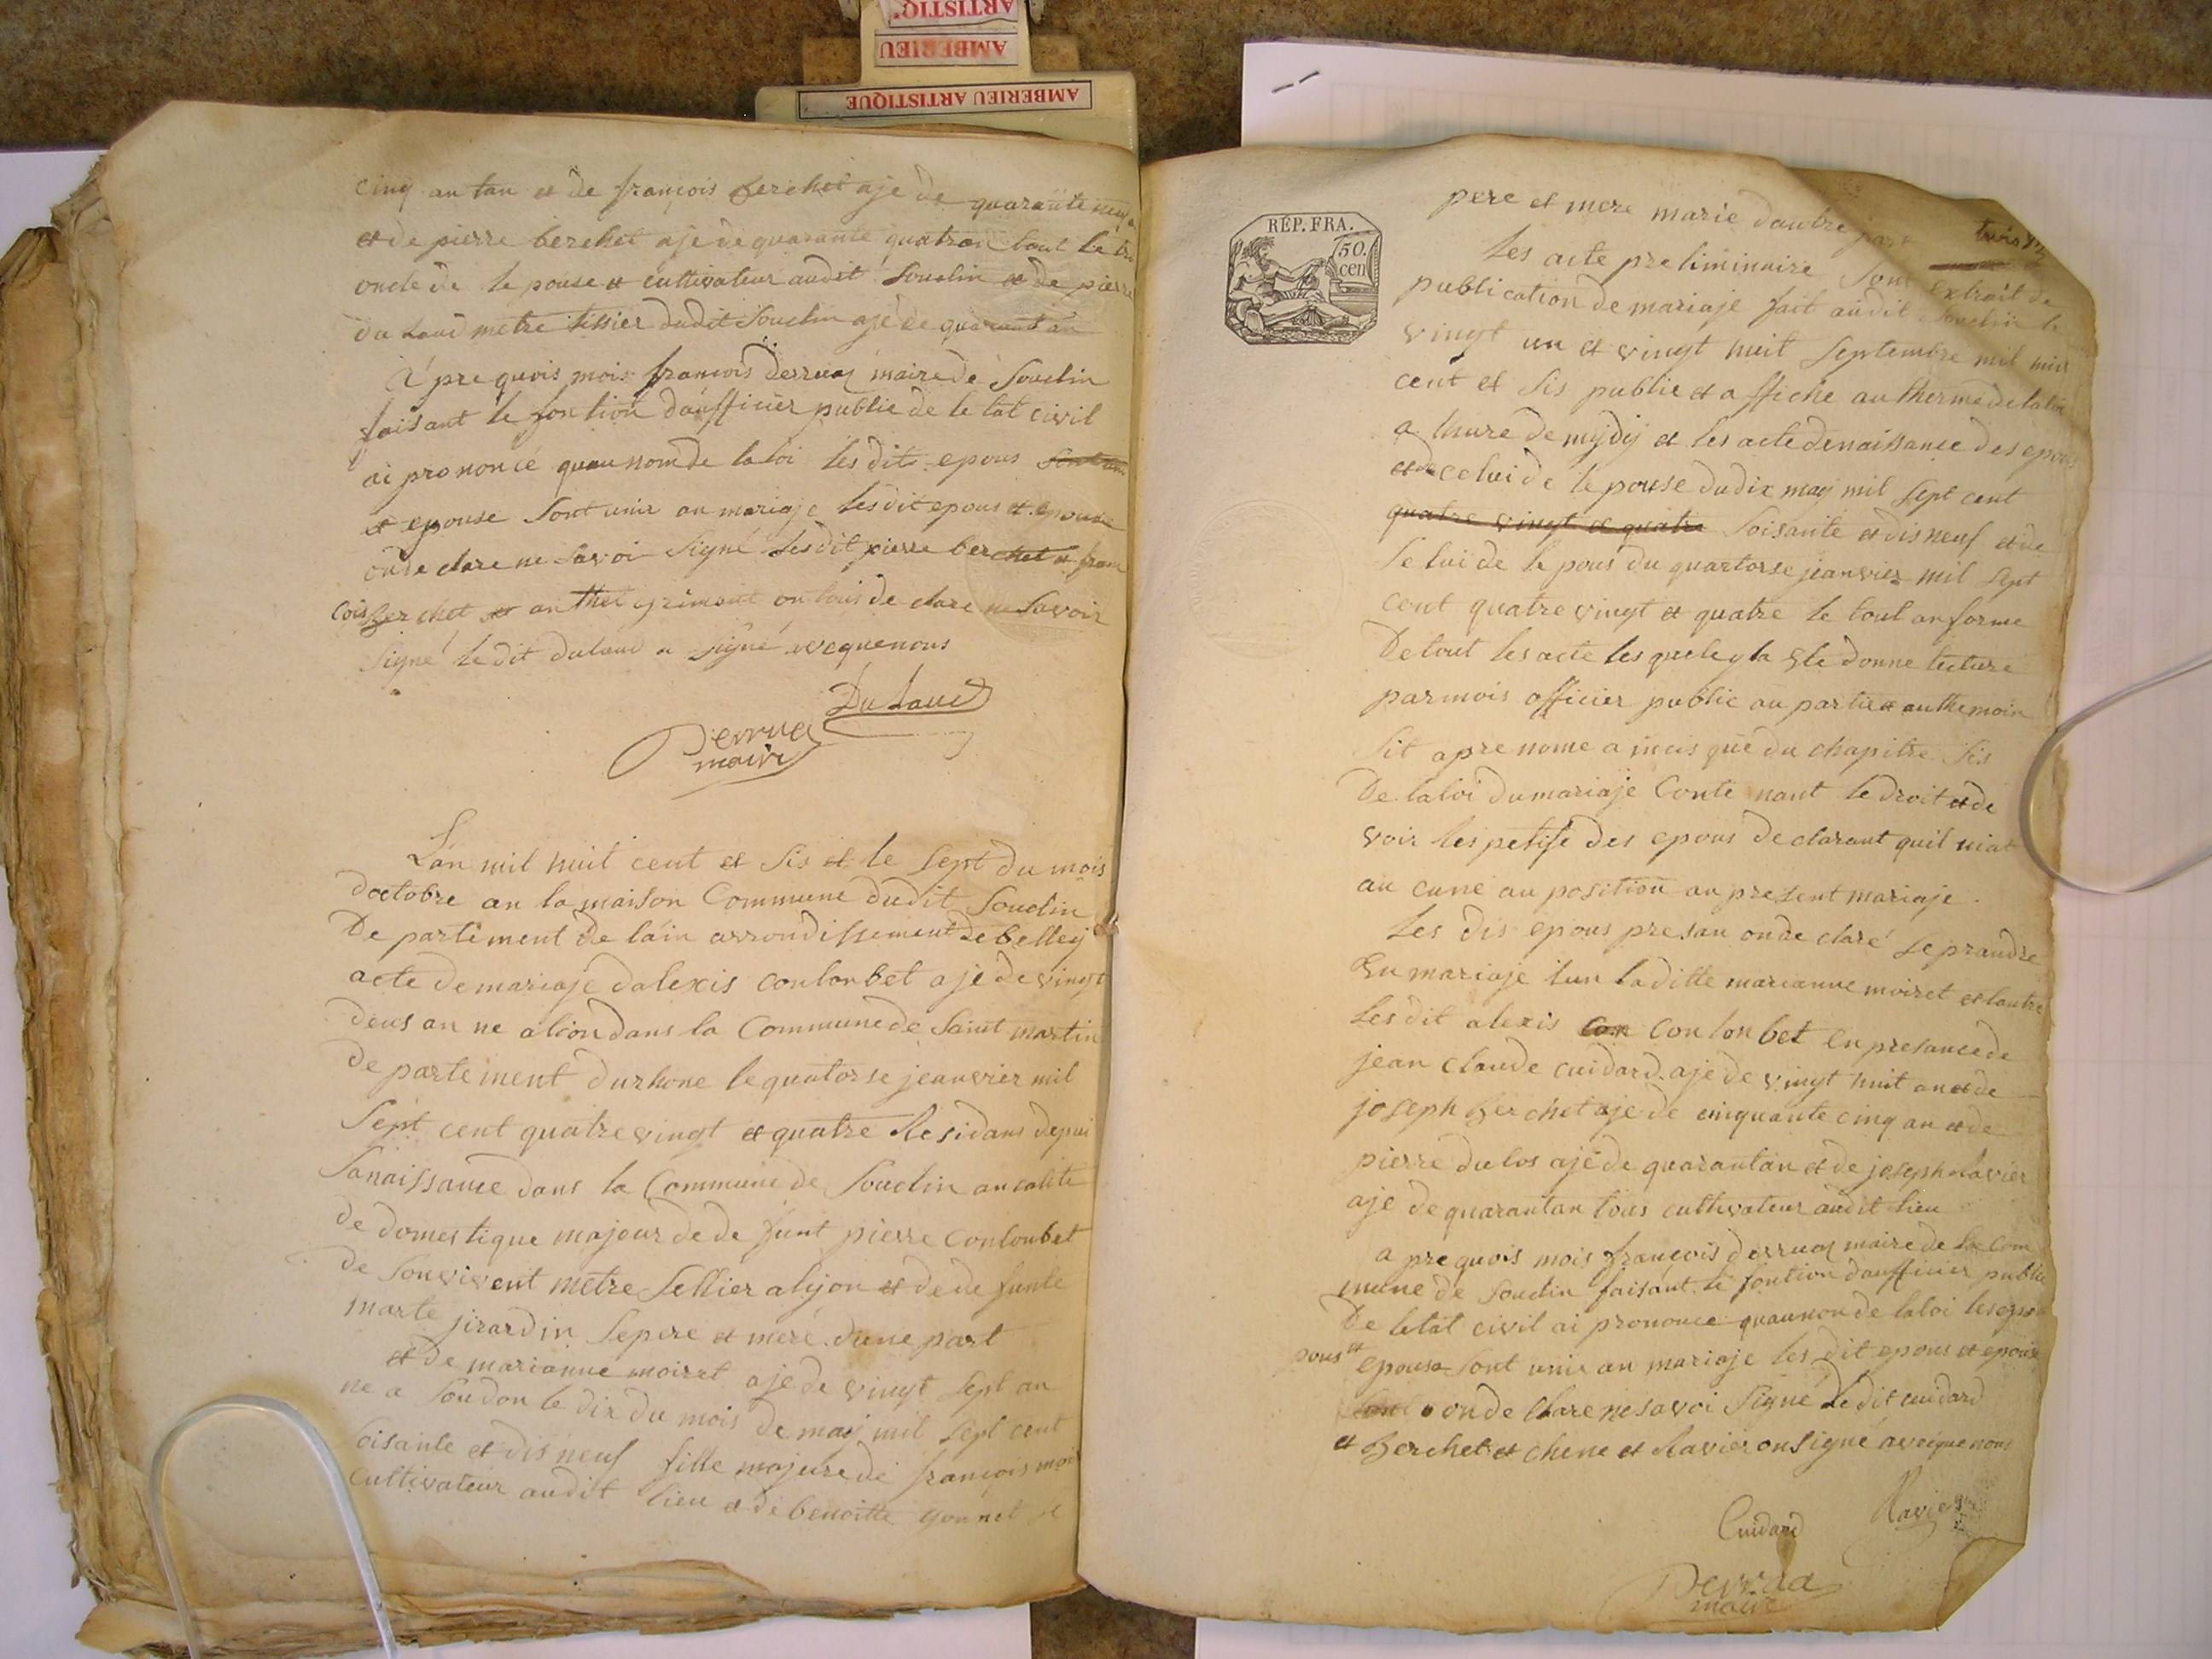 ARTISTIQ
AMBERIEU
AMBERIEU ARTISTIQUE
cinq an tau et de françois Berchet aje de quarante neuf
et de pierre berchet aje de quarante quatran tout le
oncle de le pouse et cultivateur audit Souclin et de pierre
du Laud metre tissier dudit Souclin aje de quarant an
A pre quois mois françois Derruaz maire de Souclin
faisant le fontion daufficier public de le tat civil
ai prononcé quau nom de la loi les dits epous
et epouse Sont unir an mariaje les dit epous et epouse
on de clare ne Savoi Signé les dit pierre berchet et fran
cois Berchet et anthel grimont on tous de clare ne Savoir
Signé le dit dulaud a Signé avequenous
Du Laud
Derruaz
maire
L'an mil huit cent et Sis et le Sept du mois
doctobre an la maison Commune dudit Souclin
De partement De lain arrondissement de belley
acte De mariaje dalexis coulonbet aje de vingt
deus an ne a lion dans la Commune de Saint martin
De partement durhone le quatorse jeanvier mil
Sept cent quatre vingt et quatre Residans depui
Sanaissance dans la Commune de Souclin an calite
de domestique majeur de de funt pierre Couloubet
de Son vivent metre Sellier a lyon et de de funte
marte jirardin Sepere et mere dune part
et de marianne moiret aje de vingt Sept an
ne a Soudon le dix du mois de may mil Sept cent
Soisante et dis neuf fille majure de françois moi
cultivateur audit lieu et de benoitte gonnet
RÉP. FRA.
50.
cen
pere et mere marie dautre part
Les acte preliminaire Sont extrait de
publication de mariaje fait audit Souclin le
vingt un et vingt huit Septembre mil huit
cent et Sis publie et affiche au therme de la loi
a lhure de mydy et les acte de naissance des epous
et de celui de le pouse du dix may mil Sept cent
quatre vingt et quatre Soisante et dis neuf et de
Se lui de le pous du quartorse jeanvier mil Sept
cent quatre vingt et quatre le tout an forme
De tout les acte les quele y la ete donne lecture
par mois officier public au partie et au themoin
Sit apre nome a incis que du chapitre Sis
De la loi du mariaje Conte nant le droit et de
voir les petife des epous declarant quil niat
au cune au position au present mariaje.
Les dis epous presan on de claré Se prandre
En mariaje lun la ditte marianne moiret et lautre
les dit alexis Coulonbet En presance de
jean claude cuidard aje de vingt huit an et de
joseph Berchet aje de cinquante cinq an et de
pierre du los aje de quarantan et de joseph Ravier
aje de quarantan tous cultivateur audit lieu
a pre quois mois françois derruaz maire de la Com
mune de Souclin faisant le fontion daufficier public
De letat civil ai prononce quau non de la loi les
pous et epouse Sont unir an mariaje les dit epous et epouse
on de Clare ne savoi Signe Le dit cuidard
et Berchet et chene et Ravier on Signé avequenous
Cuidard
Ravier
Derruaz
maire